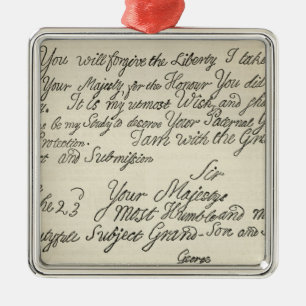 You will forgive the Liberty I take
Your Majesty, for the Honour You did
. It is my utmost Wish and sha
e be my Study to deserve Your Paternal G
rotection. I am with the Gre
ct and Submission
Sir
he 23ᵈ Your Majestys
most Humble and m
utyfull Subject Grand-Son and S
George